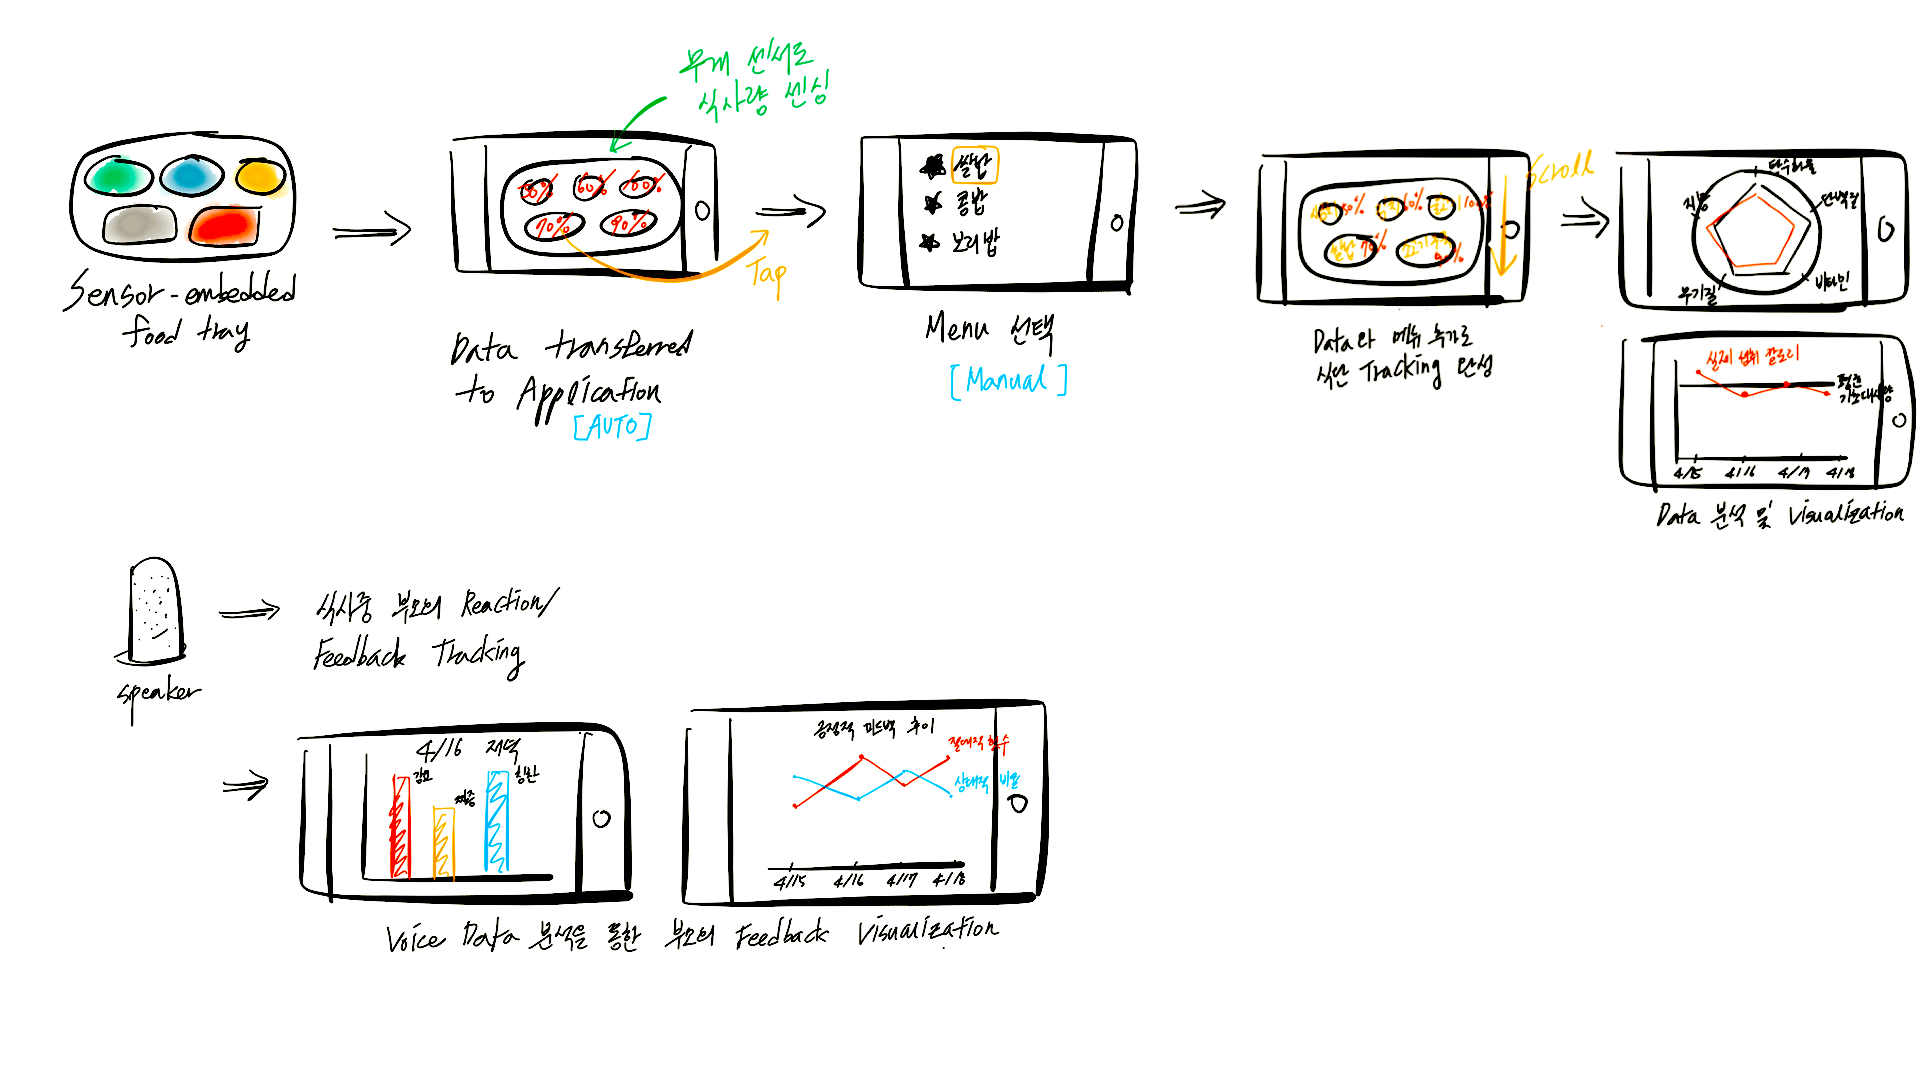 무게 센서로
식사량 센싱
Sensor-embedded
food tray
50% 60% 100%
70% 90%
Tap
Data transferred
to Application
[AUTO]
쌀밥
콩밥
보리밥
Menu 선택
[Manual]
50% 60% 100%
쌀밥 70% 90%
Scroll
Data와 메뉴 추가로
식단 Tracking 완성
탄수화물
단백질
비타민
무기질
지방
실제 섭취 칼로리
평균
기초대사량
4/15 4/16 4/17 4/18
Data 분석 및 Visualization
speaker
식사중 부모의 Reaction/
Feedback Tracking
4/16 저녁
칭찬
긍정적 피드백 추이
절대적 횟수
상대적 비율
4/15 4/16 4/17 4/18
Voice Data 분석을 통한 부모의 Feedback Visualization